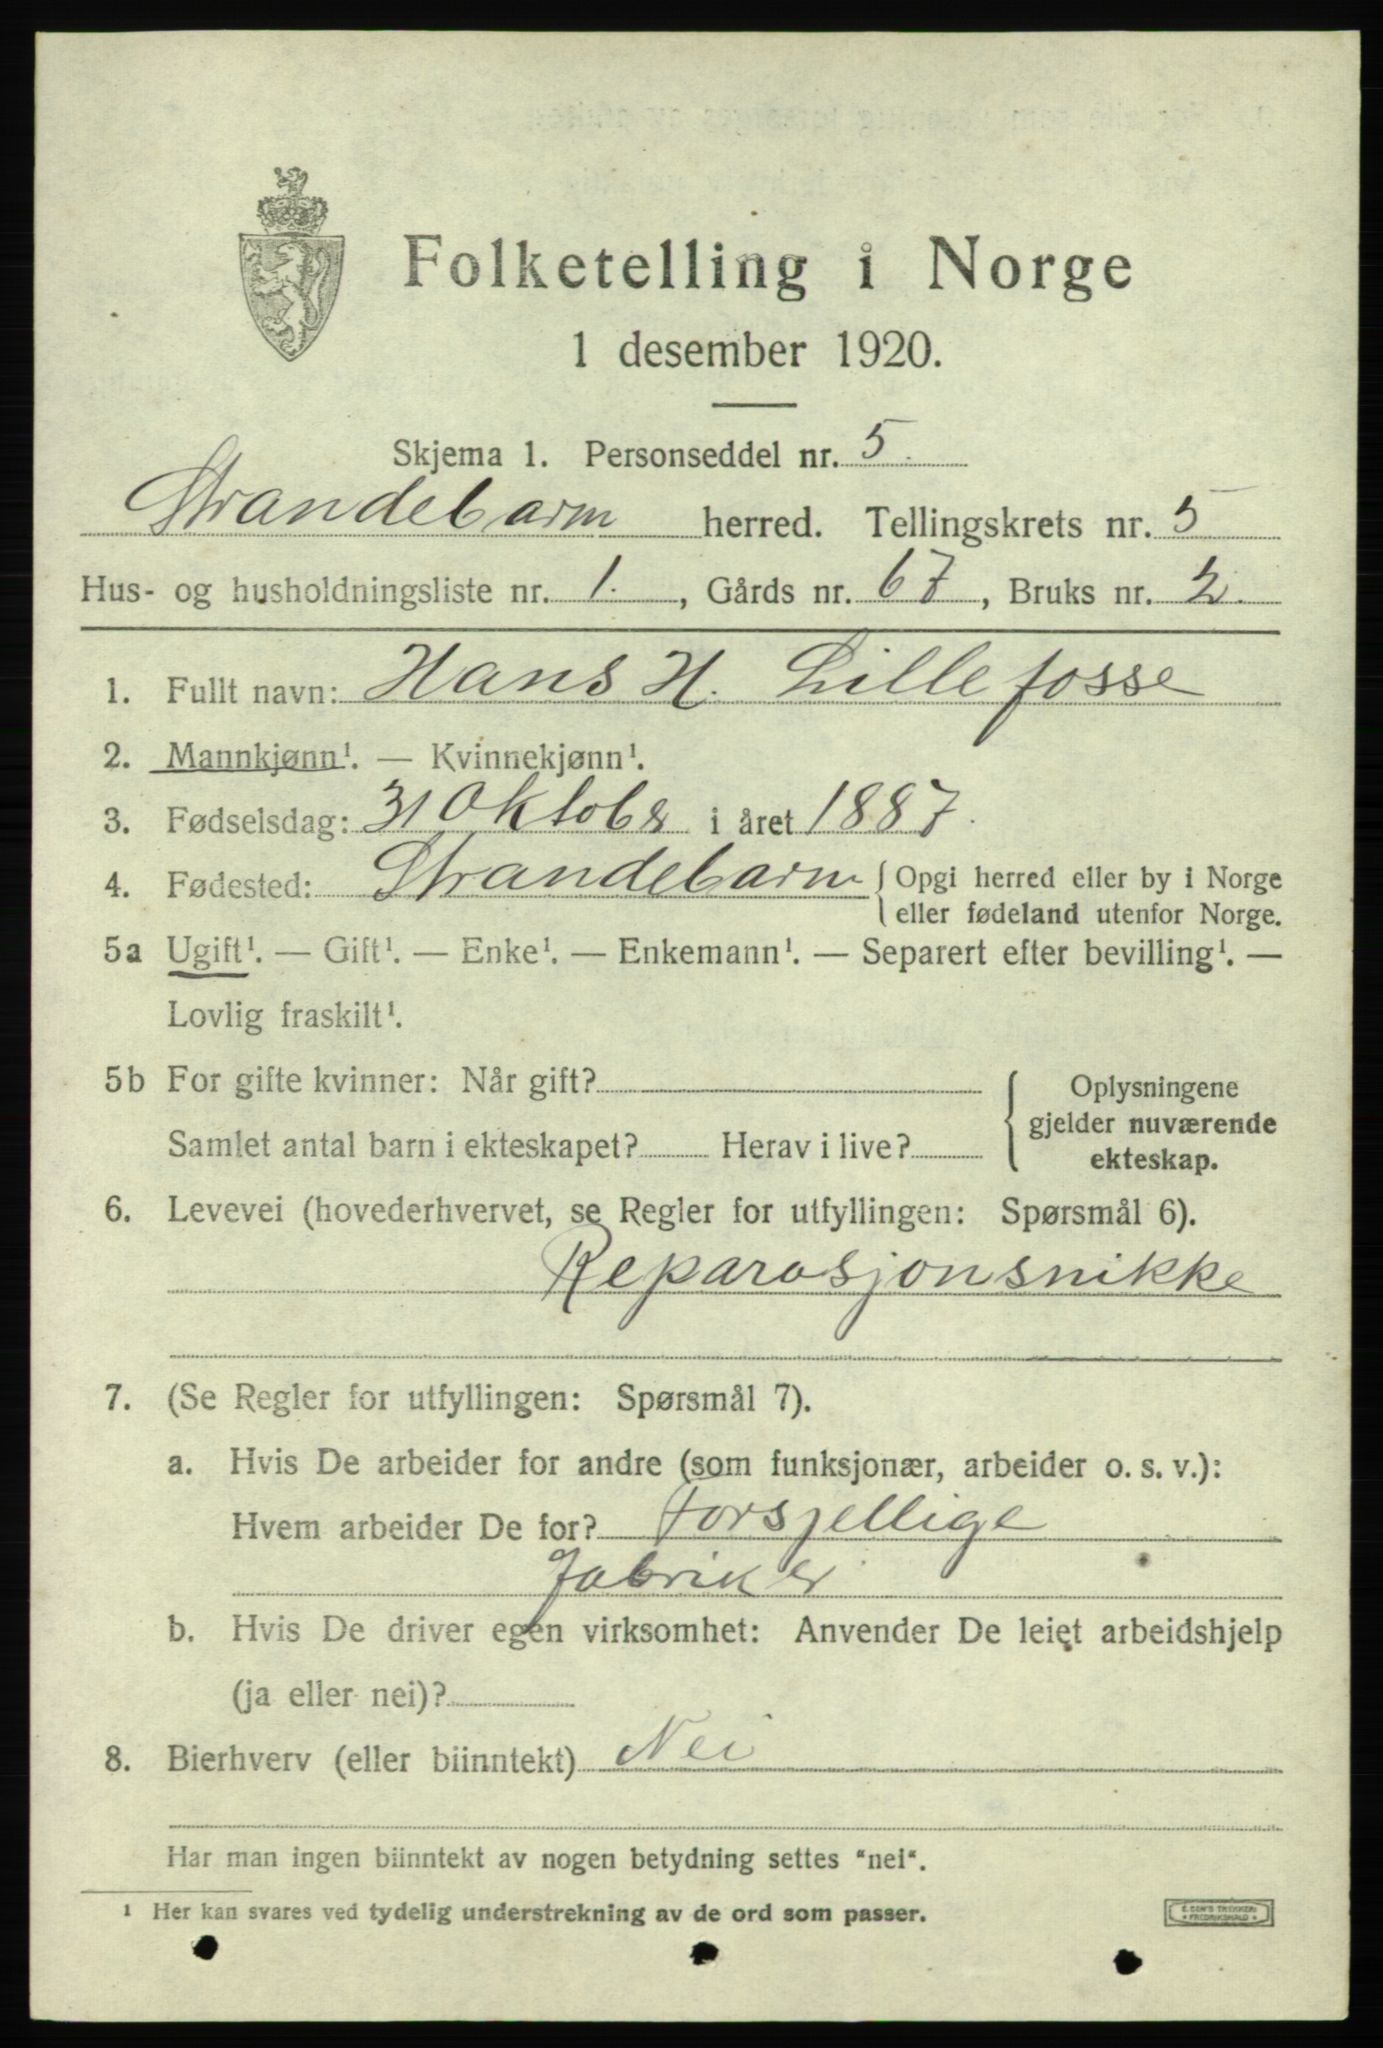 Folketelling i Norge
1 desember 1920.
Skjema 1. Personseddel nr. 5.
Strandebarm herred. Tellingskrets nr. 5
Hus- og husholdningsliste nr. 1., Gårds nr. 67, Bruks nr. 2.
1. Fullt navn: Hans H. Lillefosse
2. Mannkjønn¹. — Kvinnekjønn¹.
3. Fødselsdag: 31 Oktober i året 1887.
4. Fødested: Strandebarm { Opgi herred eller by i Norge
eller fødeland utenfor Norge.
5a Ugift¹. — Gift¹. — Enke¹. — Enkemann¹. — Separert efter bevilling¹. —
Lovlig fraskilt¹.
5b For gifte kvinner: Når gift?
Samlet antal barn i ekteskapet? Herav i live?
Oplysningene
gjelder nuværende
ekteskap.
6. Levevei (hovederhvervet, se Regler for utfyllingen: Spørsmål 6).
Reparasjonsnikke
7. (Se Regler for utfyllingen: Spørsmål 7).
a. Hvis De arbeider for andre (som funksjonær, arbeider o. s. v.):
Hvem arbeider De for? Forsjellige
Fabriker
b. Hvis De driver egen virksomhet: Anvender De leiet arbeidshjelp
(ja eller nei)?
8. Bierhverv (eller biinntekt) Nei
Har man ingen biinntekt av nogen betydning settes "nei".
¹ Her kan svares ved tydelig understrekning av de ord som passer.